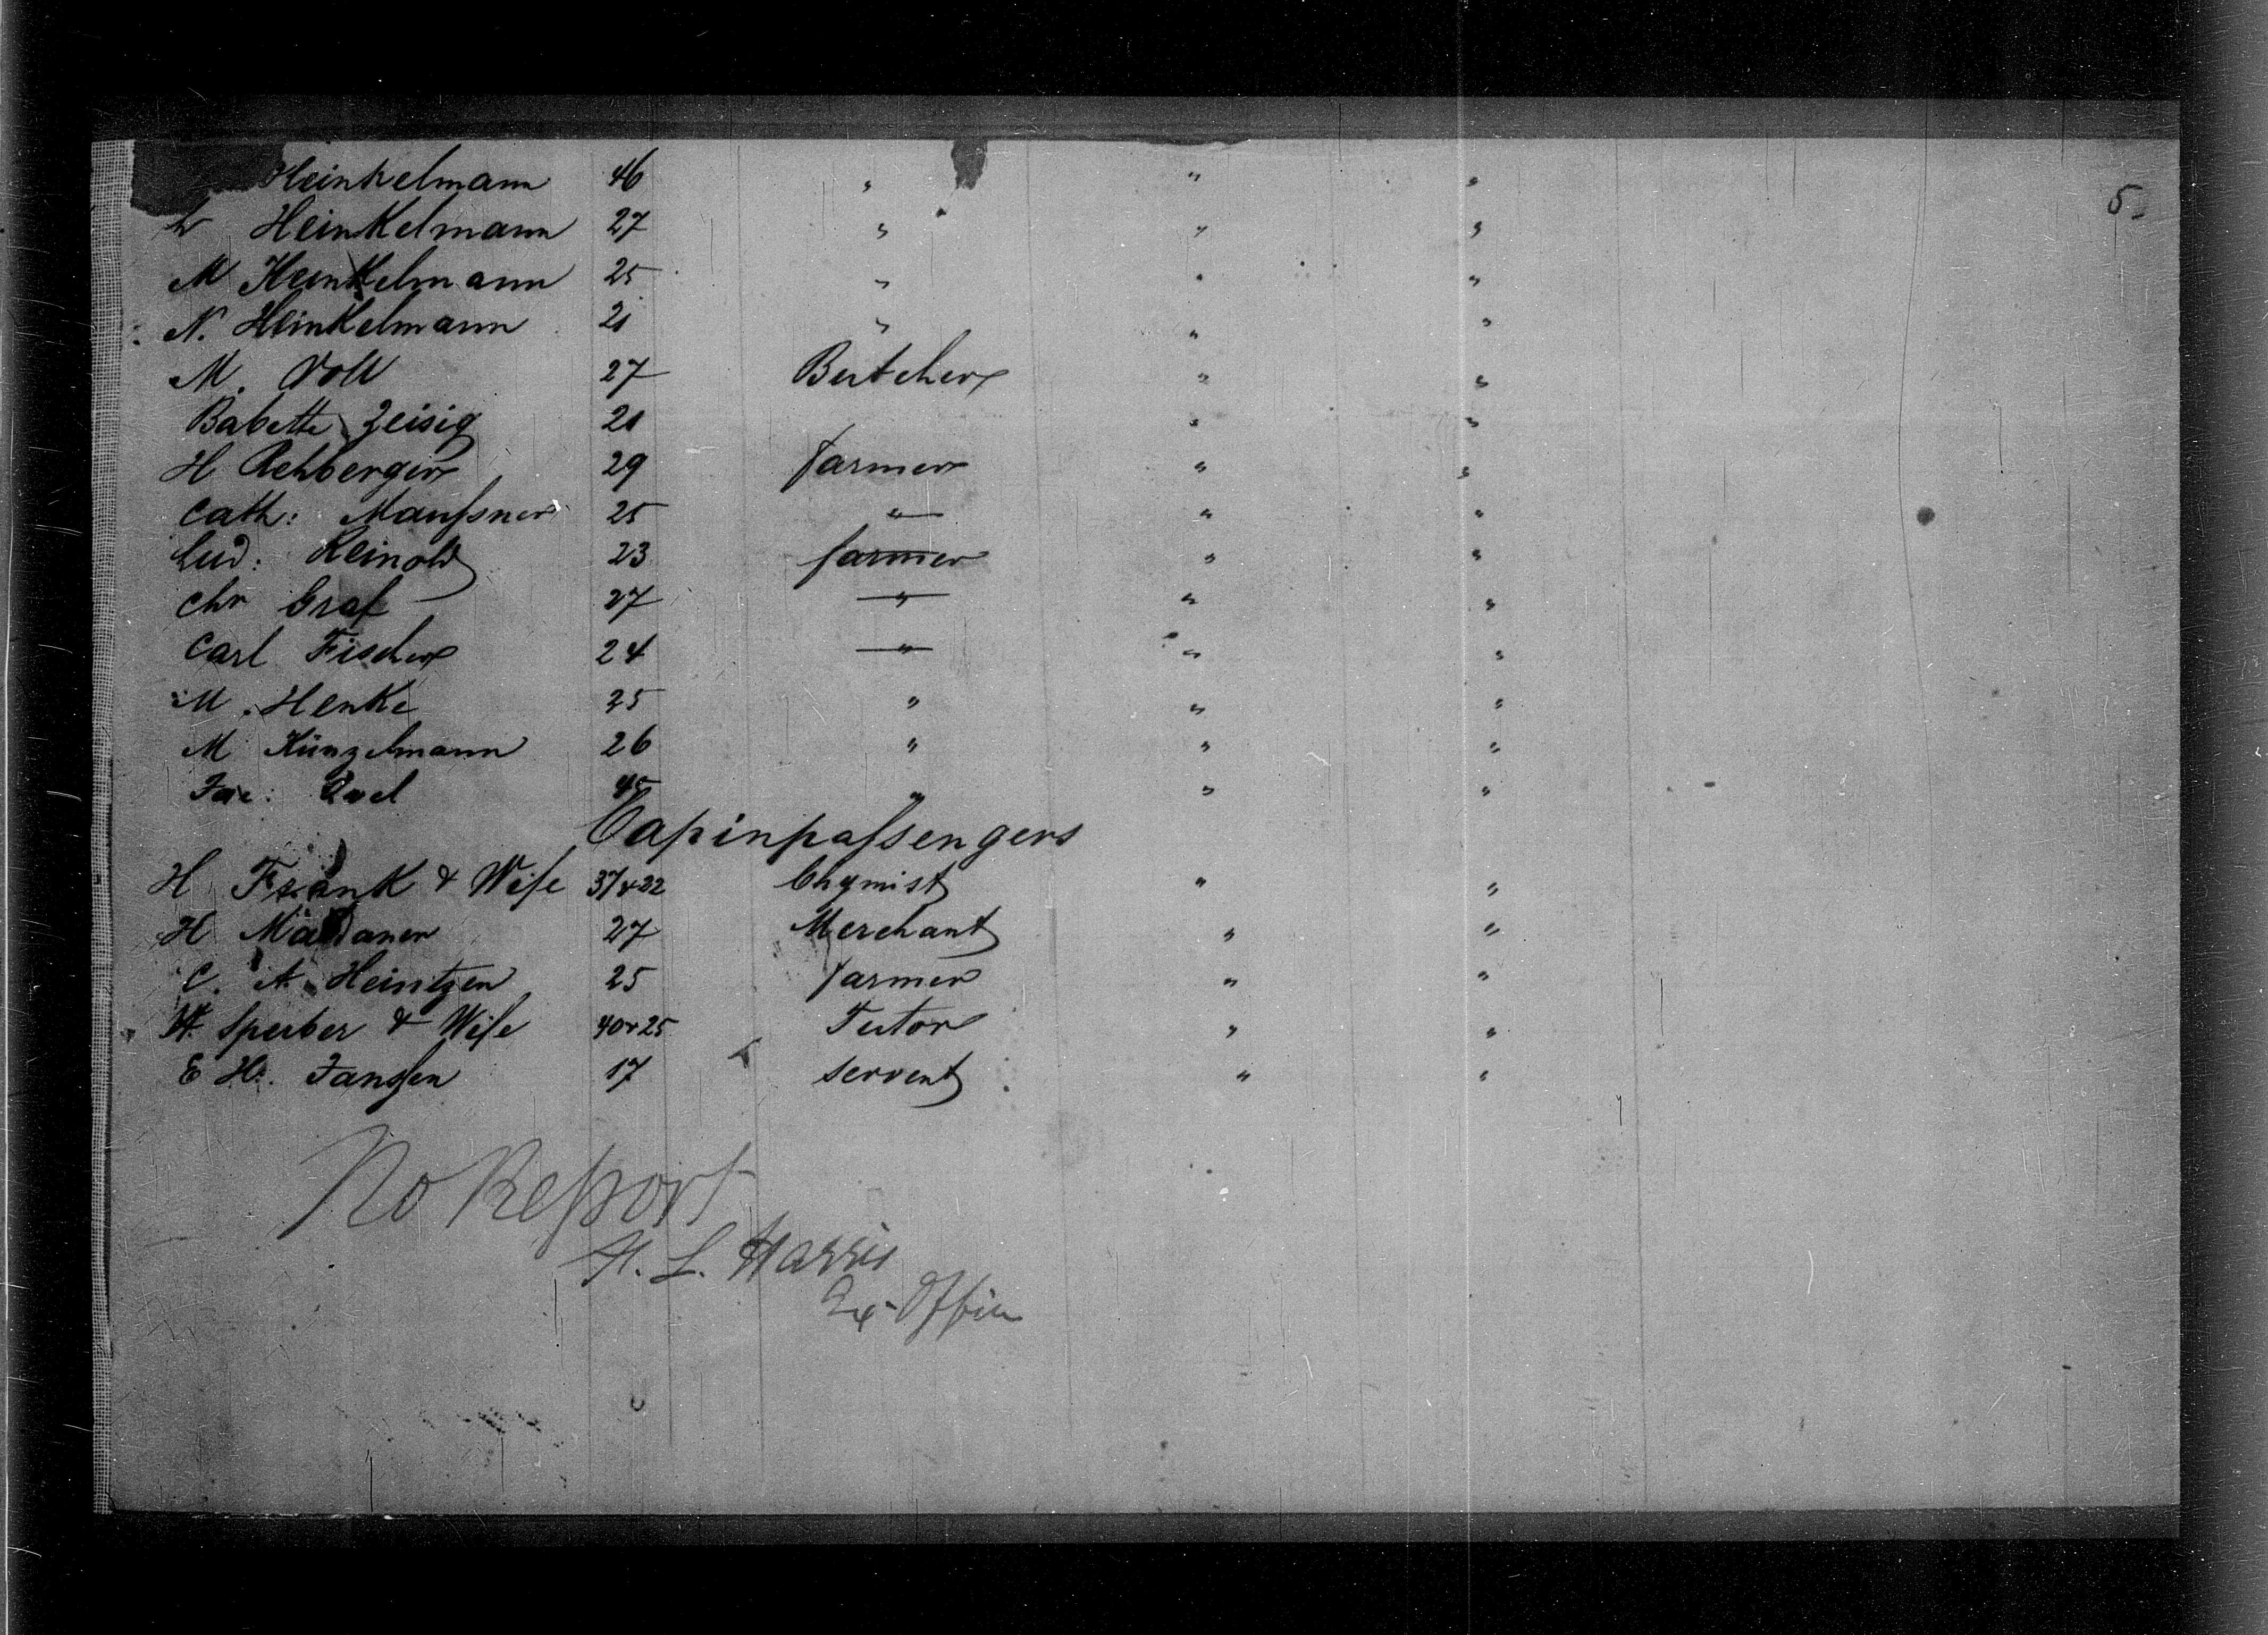 Heinkelmann 46 " " "
5.
L Heinkelmann 27 " " "
M Heinkelmann 25 " " "
N. Heinkelmann 21 " " "
M. Voll 27 Butcher " "
Babette Zeisig 21 " "
H Rehberger 29 farmer " "
Cath: Maußner 25 " " "
Lud: Reinold 23 farmer " "
Chr Graf 27 " " "
Carl Fischer 24 " " "
M. Henke 25 " " "
M Künzelmann 26 " " "
45 " " "
Capinpaßengers
H Frank & Wife 37 & 22 Chymist " "
H 27 Merchant " "
C. A. Heintzen 25 farmer " "
W. Sperber & Wife 40 & 25 Tutor " "
E H. Janßen 17 servent " "
No Report
H. L. Harris